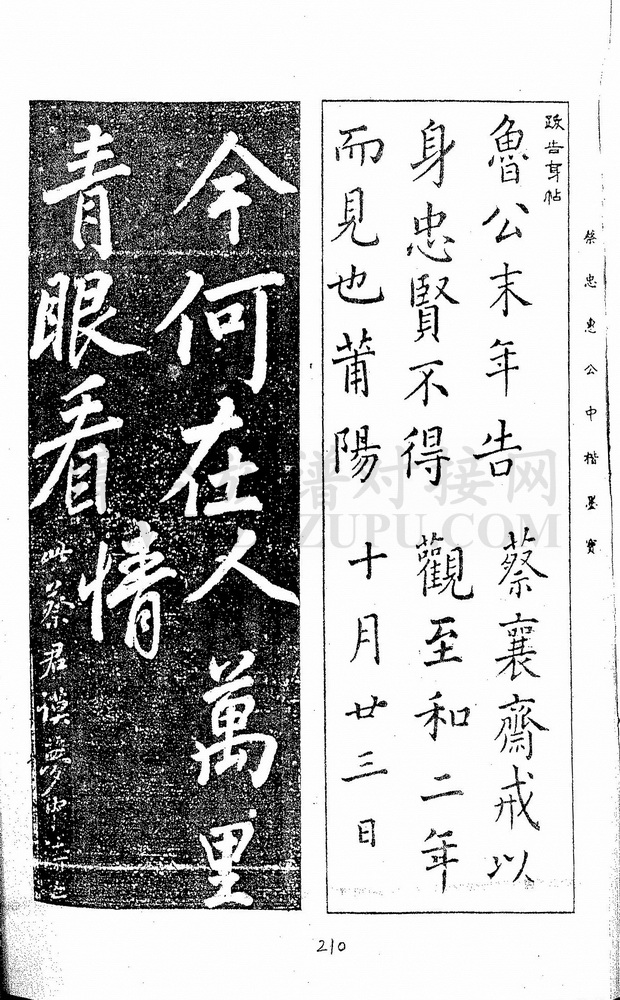 蔡忠惠公中楷墨寶
跋告身帖
魯公末年告
身忠賢不得
而見也莆陽
蔡襄齋戒以
觀至和二年
十月廿三日
今何在
青眼看
人萬里
情
此蔡君謨夢中
210
谱对接网
ZUPU.COM